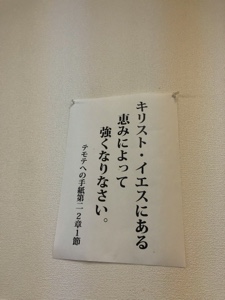 キリスト・イエスにある
恵みによって
強くなりなさい。
テモテへの手紙第二 2章1節